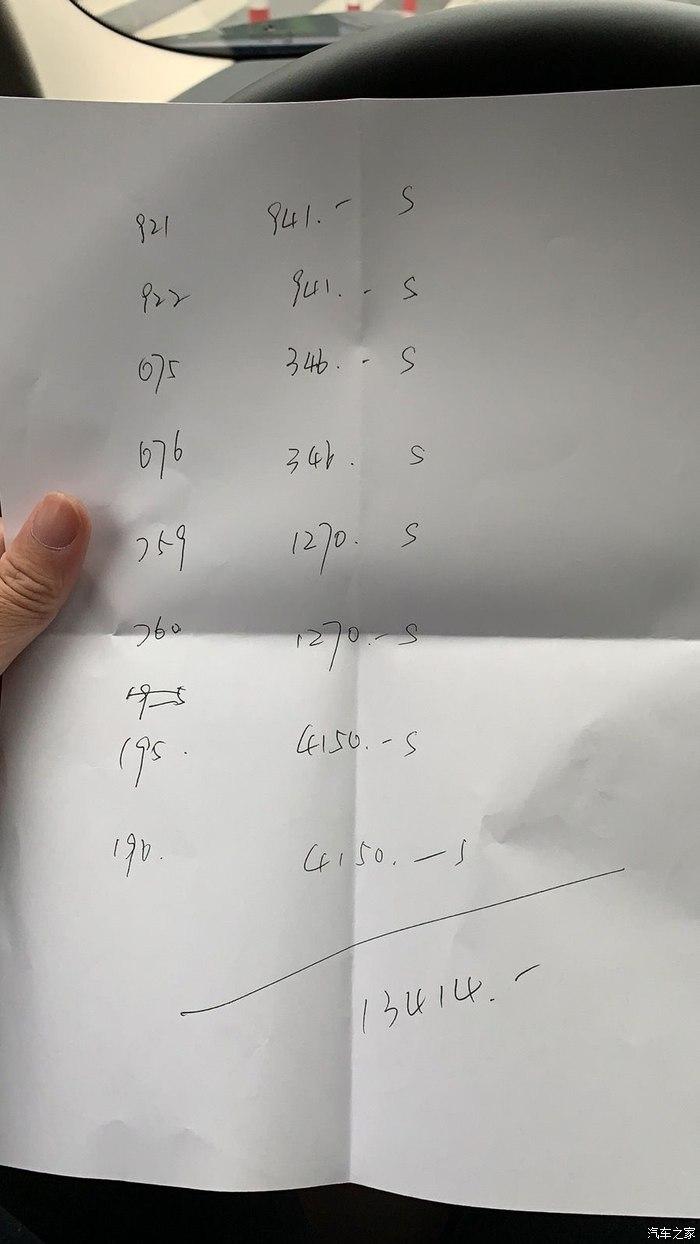 921 941.- S
922 941.- S
075 346.- S
076 346. S
759 1270. S
760 1270.- S
195. 4150.- S
196. 4150.- S
13414.-
汽车之家